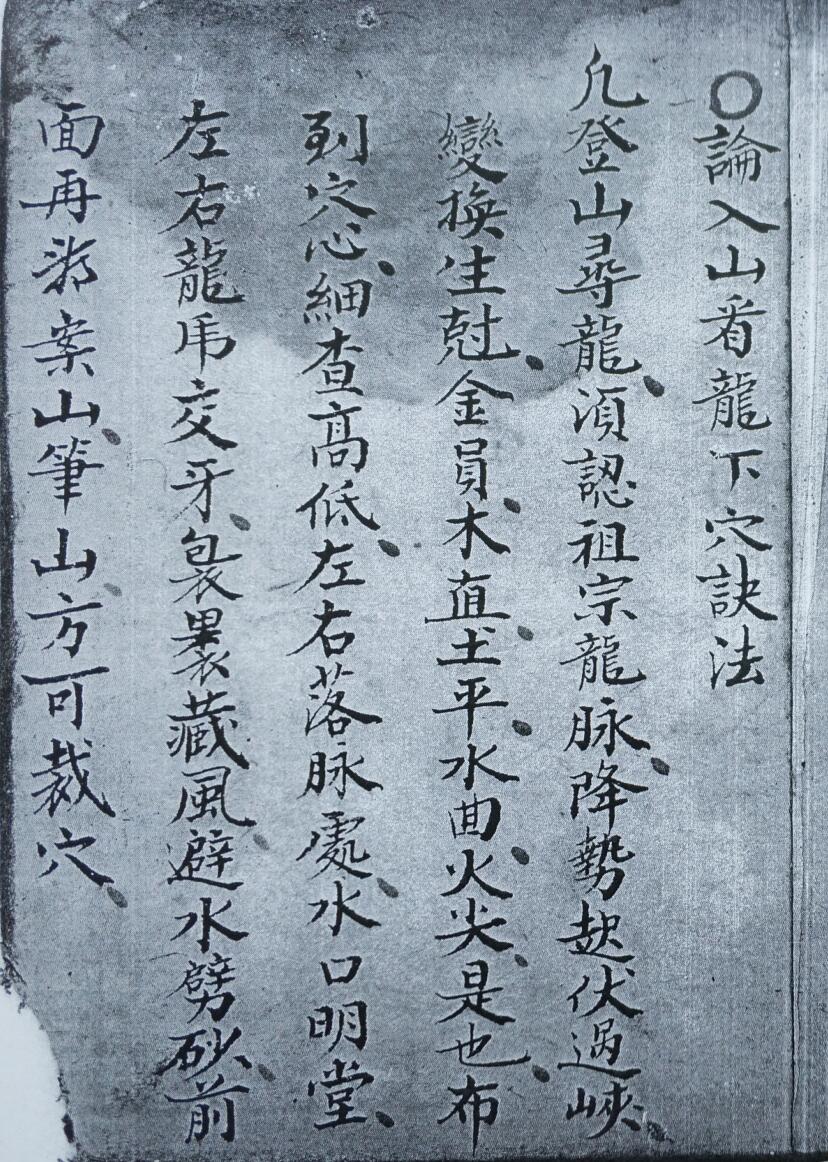 〇論入山看龍下穴訣法
凡登山尋龍、須認祖宗龍脉、降勢起伏過峽
變換生尅、金員、木直、土平、水曲、火尖、是也、布
到穴心、細查高低、左右落脉處、水口明堂、
左右龍虎交牙、包裹藏風、避水劈砂、前
面再案山、筆山、方可裁穴、